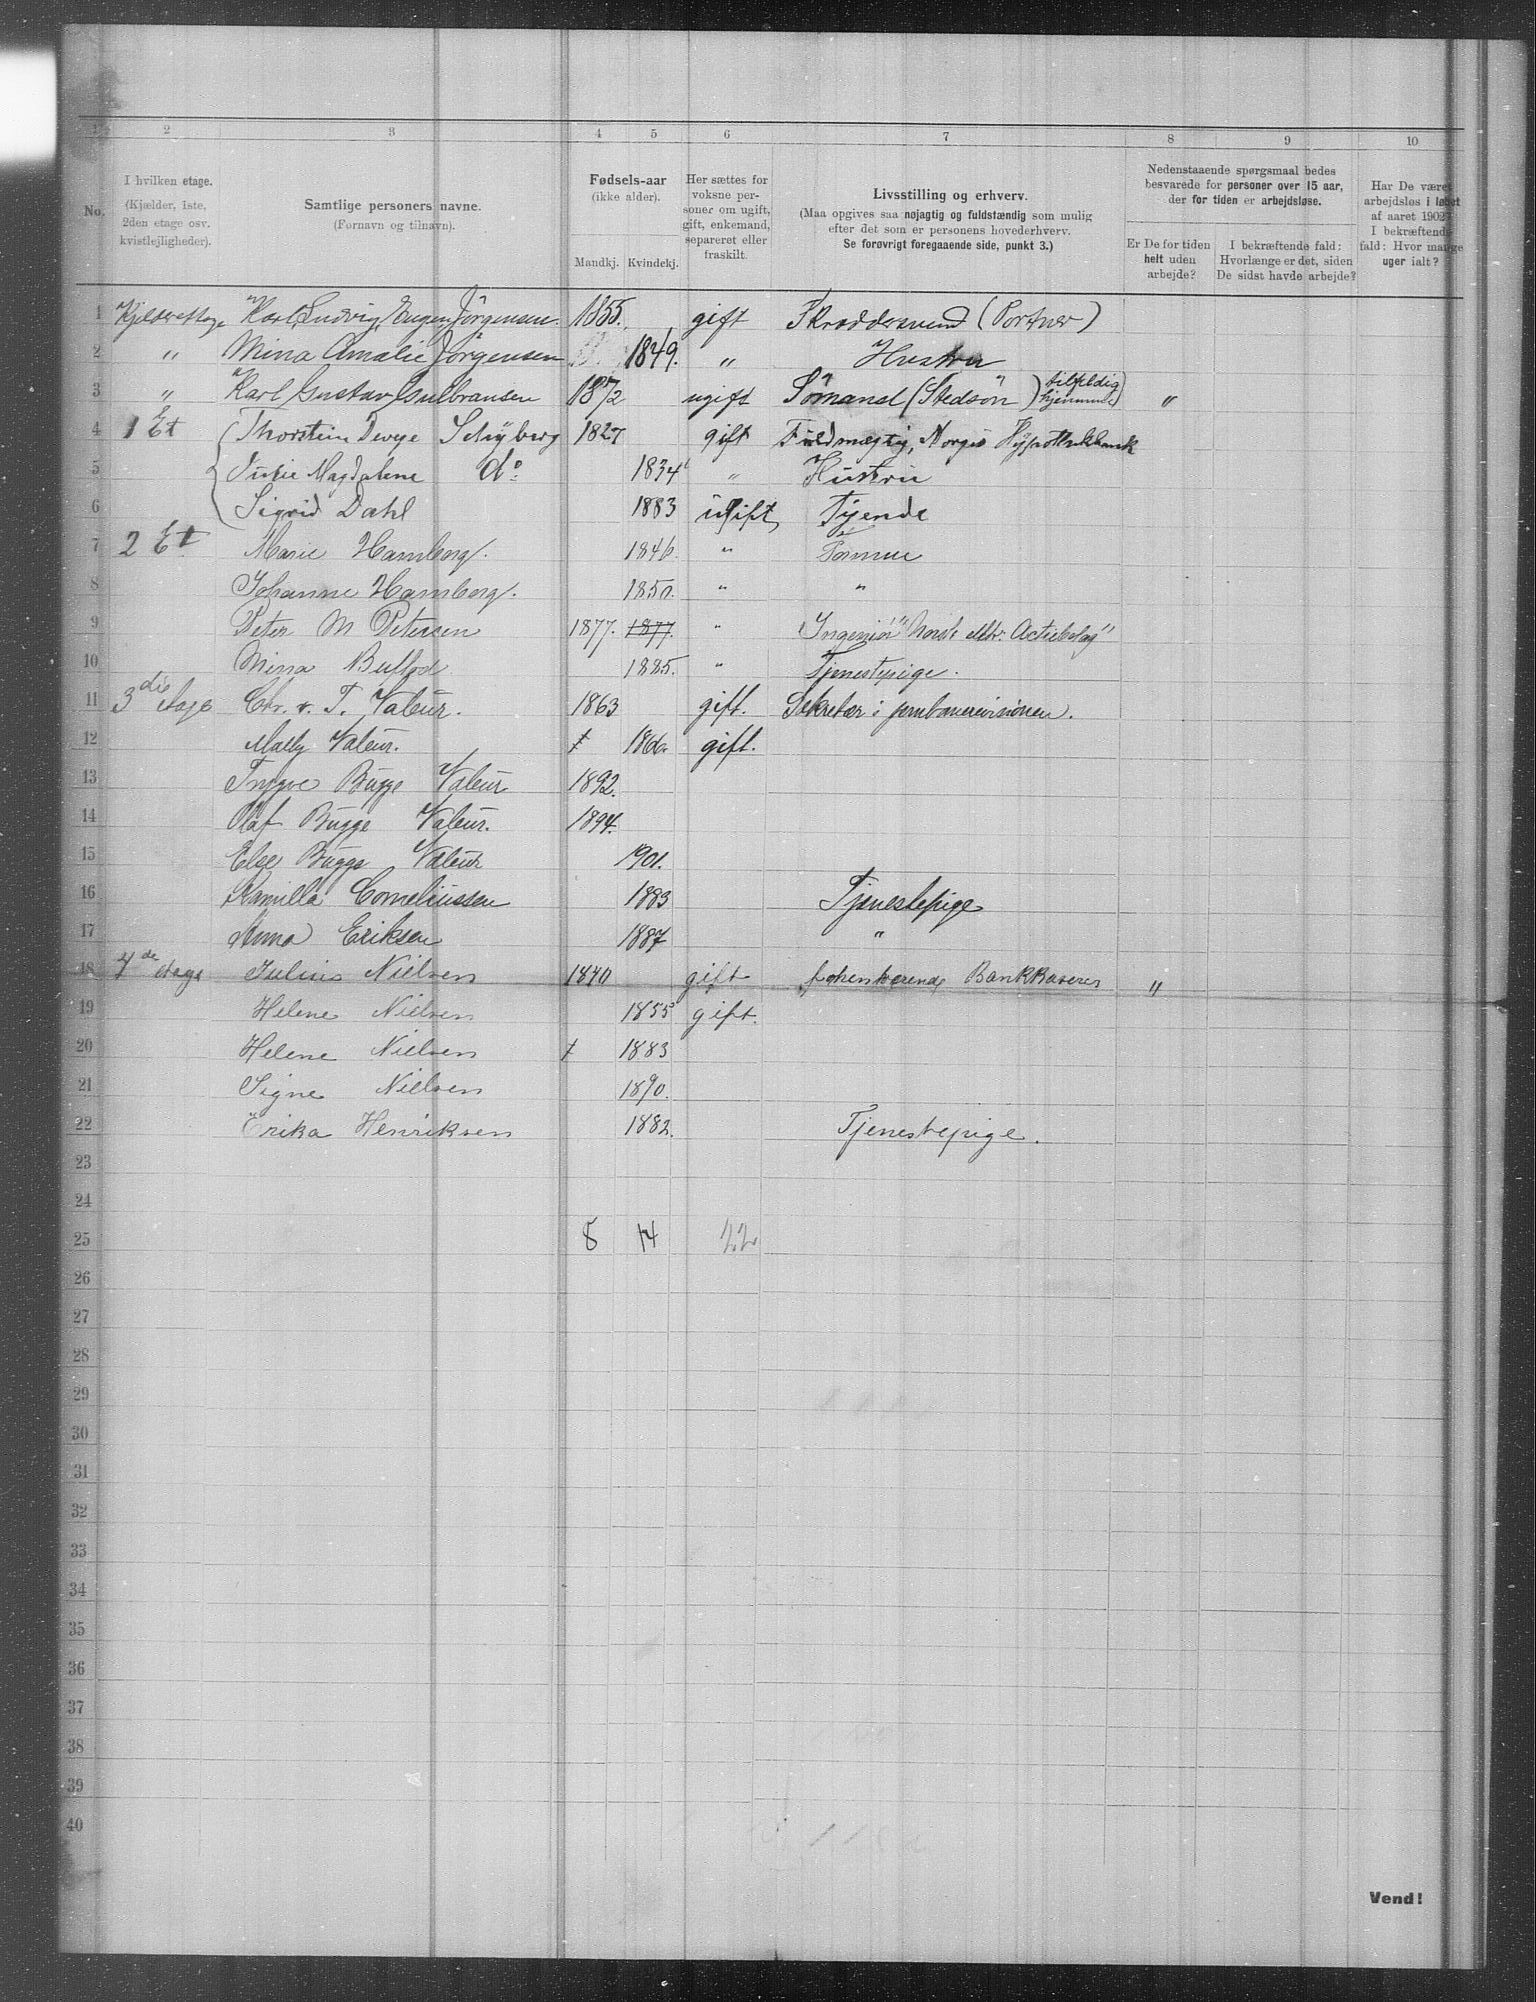 1 2 3 4 5 6 7 8 9 10
No.
I hvilken etage.
(Kjælder, 1ste,
2den etage osv.
kvistlejligheder).
Samtlige personers navne.
(Fornavn og tilnavn).
Fødsels-aar
(ikke alder).
Mandkj. Kvindekj.
Her sættes for
voksne per-
soner om ugift,
gift, enkemand,
separeret eller
fraskilt.
Livsstilling og erhverv.
(Maa opgives saa nøjagtig og fuldstændig som mulig
efter det som er personens hovederhverv.
Se forøvrigt foregaaende side, punkt 3.)
Nedenstaaende spørgsmaal bedes
besvarede for personer over 15 aar,
der for tiden er arbejdsløse.
Er De for tiden
helt uden
arbejde?
I bekræftende fald:
Hvorlænge er det, siden
De sidst havde arbejde?
Har De været
arbejdsløs i løbet
af aaret 1902?
I bekræftende
fald: Hvor mange
uger ialt?
1 Kjelderetage Karl Ludvig Eugen Jörgensen. 1855. gift Skræddersvend (Portner)
2 " Mina Amalie Jörgensen 1849. " Hustru
3 " Karl Gustav Gulbransen 1872 ugift Sömand (Stedsön) tilfeldig hjemme) "
4 1 Et Thorstein Schyberg 1827 gift Fuldmægtig, Norges Hypothekbank
5 Julie Magdalene do 1834 " Hustru
6 Sigrid Dahl 1883 ugift Tjende
7 2 Et Marie Hamborg. 1846. "
8 Johanne Hamborg. 1850. " "
9 Peter M Petersen 1877. 1877. " Ingeniör "Norsk elktr. Actiebolag"
10 Mina 1885. " Tjenestepige.
11 3die Etage Chr. v. T. Valeur. 1863 gift. Sekretær i jernbanerevisionen.
12 Mally Valeur. 1860. gift.
13 Trygve Bugge Valeur 1892.
14 Olaf Bugge Valeur. 1894.
15 Else Bugge Valeur 1901.
16 Kamilla Corneliussen 1883 Tjenestepige
17 Anna Eriksen 1887 "
18 4de etage Julius Nielsen 1840 gift forhenværende Bankkaserer "
19 Helene Nielsen 1855 gift.
20 Helene Nielsen 1883
21 Signe Nielsen 1890.
22 Erika Henriksen 1882. Tjenestepige.
23
24
25 8 14 22
26
27
28
29
30
31
32
33
34
35
36
37
38
39
40
Vend!